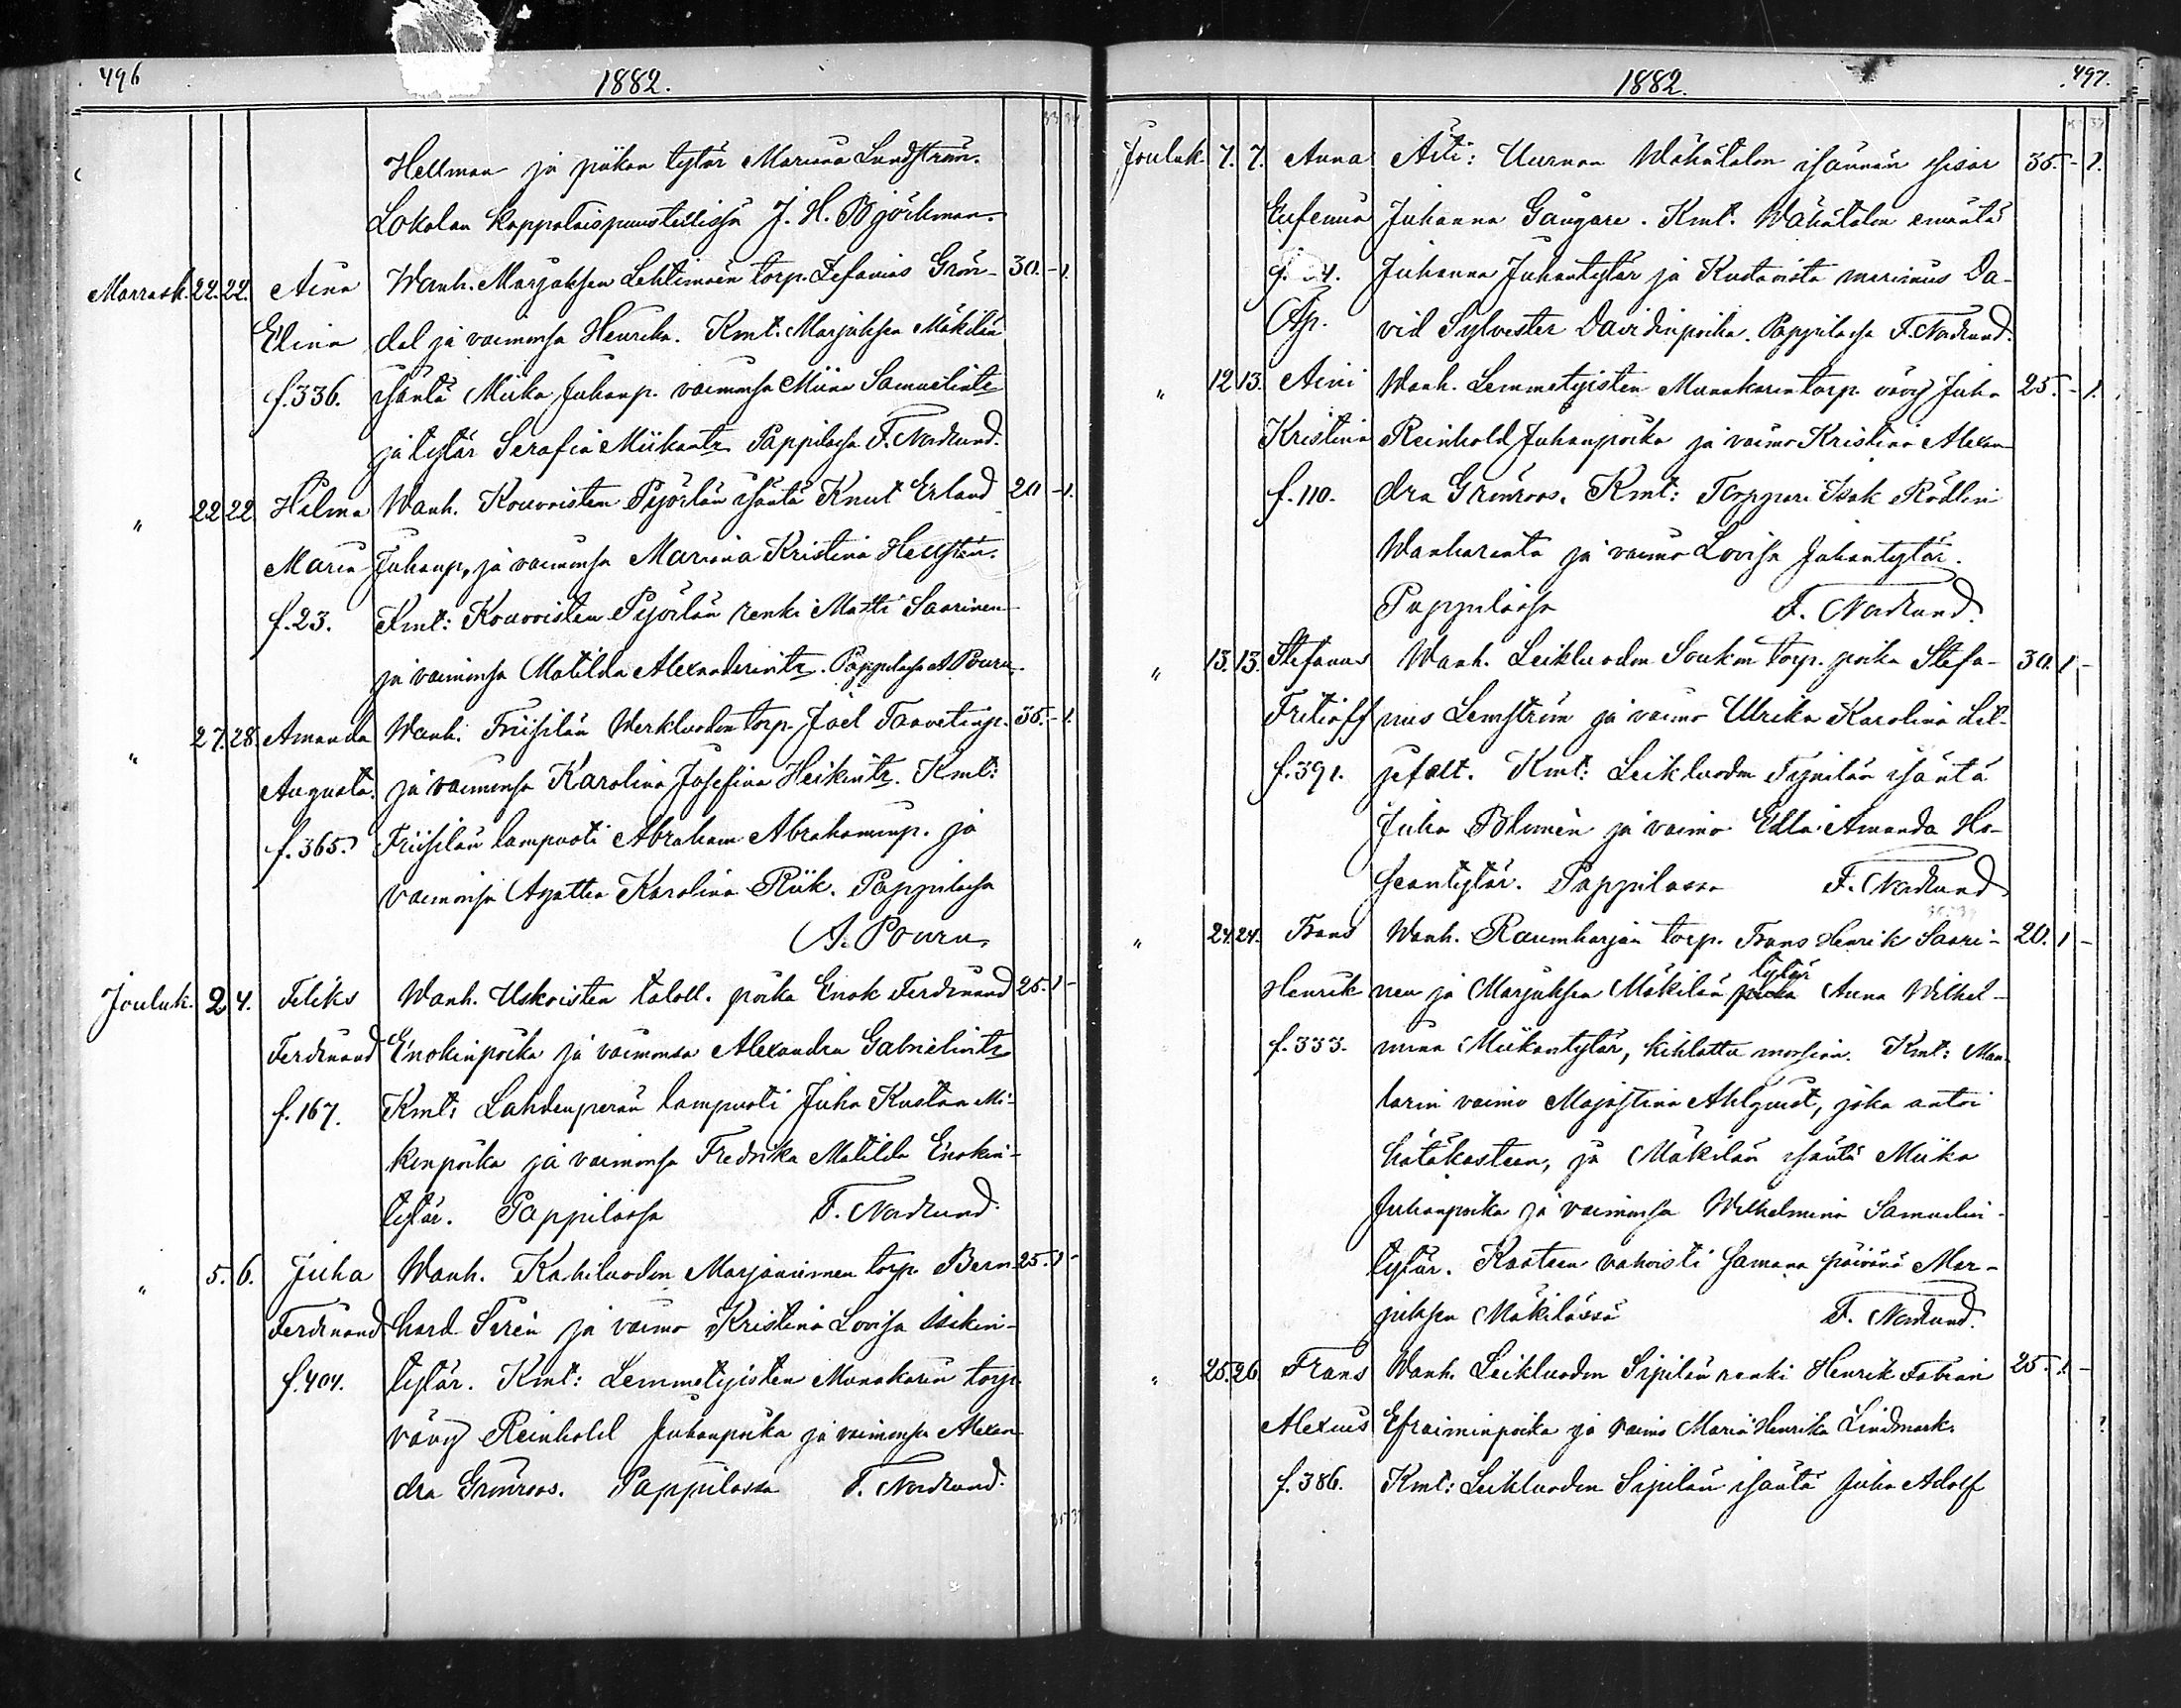 496
1882.
Hellman ja piikan tytär Mariana Lundström.
Lokalan kappalaispuustellissa J. H. Björkman.
Marrask. 22. 22. Aina Wanh. Marjuksen Lehtimäen torp. Stefanus Grön- 30. - 1.
Elina dal ja vaimonsa Henrika. Kmt: Marjuksen Mäkilän
f. 336. isäntä Miika Juhanp. vaimonsa Miina Samuelintr
ja tytär Serafia Miikantr. Pappilassa F. Nordlund.
" 22 22 Hilma Wanh. Kouvoisten Pyörlän isäntä Knut Erland 20 - 1.
Maria Juhanp. ja vaimonsa Mariana Kristina Hellstén.
f. 23. Kmt: Kouvoisten Pyörlän renki Matti Saarinen
ja vaimonsa Matilda Alexanderintr. Pappilassa A Pouru.
" 27. 28. Amanda Wanh. Friisilän Werkluodon torp. Joel Taavetinp. 35. - 1.
Augusta. ja vaimonsa Karolina Josefina Heikintr. Kmt:
f. 365. Friisilän lampuoti Abraham Abrahaminp. ja
vaimonsa Agatha Karolina Riik. Pappilassa
A. Pouru.
Jouluk. 2 4. Feliks Wanh. Uskoisten taloll. poika Enok Ferdinand 25. 1 -
Ferdinand Enokinpoika ja vaimonsa Alexandra Gabrielintr
f. 167. Kmt: Lahdenperän lampuoti Juha Kustaa Mi-
kinpoika ja vaimonsa Fredrika Matilda Enokin-
tytär. Pappilassa F. Nordlund.
" 5. 6. Juha Wanh. Kahiluodon Marjaniemen torp. Bern- 25. 1 -
Ferdinand hard Sirén ja vaimo Kristina Lovisa Isakin-
f. 404. tytär. Kmt: Lemmetyisten Munakarin torp.
vävy Reinhold Juhanpoika ja vaimonsa Alexan-
dra Grönroos. Pappilassa F. Nordlund.
1882.
497.
Jouluk. 7. 7. Anna Äiti: Uurnan Wähätalon isännän sisar 35. - 1.
Eufemia Juhanna Gangare. Kmt. Wähätalon emäntä
Juhanna Juhantytär ja Kustavista merimies Da-
Äp. vid Sylvester Davidinpoika. Pappilassa F. Nordlund.
" 12 13. Aini Wanh. Lemmetyisten Munakarin torp. vävy Juha 25. - 1.
Kristina Reinhold Juhanpoika ja vaimo Kristina Alexan-
f. 110. dra Grönroos. Kmt: Torppari Isak Rödlin
Wanharanta ja vaimo Lovisa Juhantytär.
Pappilassa F. Nordlund.
" 13. 13. Stefanus Wanh. Leikluodon Soukon torp. poika Stefa- 30. 1 -
Fritioff nus Lemström ja vaimo Ulrika Karolina Lil-
f. 391. jefelt. Kmt: Leikluodon Sipilän isäntä
Juha Blomén ja vaimo Edla Amanda Ho-
seantytär. Pappilassa F. Nordlund
" 24. 24. Frans Wanh. Raumharjan torp. Frans Henrik Saari- 20. 1 -
Henrik nen ja Marjuksen Mäkilän tytär Anna Wilhel-
f. 333. mina Miikantytär, kihlattu morsian. Kmt: Maa-
larin vaimo Majastina Ahlquist, joka antoi
hätäkasteen, ja Mäkilän isäntä Miika
Juhanpoika ja vaimonsa Wilhelmina Samuelin-
tytär. Kasteen vahvisti samana päivänä Mar-
juksen Mäkilässä F. Nordlund.
" 25. 26 Frans Wanh. Leikluodon Sipilän renki Henrik Fabian 25. 1. -
Alexius Efraiminpoika ja vaimo Maria Henrika Lindmark.
f. 386. Kmt: Leikluodon Sipilän isäntä Juha Adolf